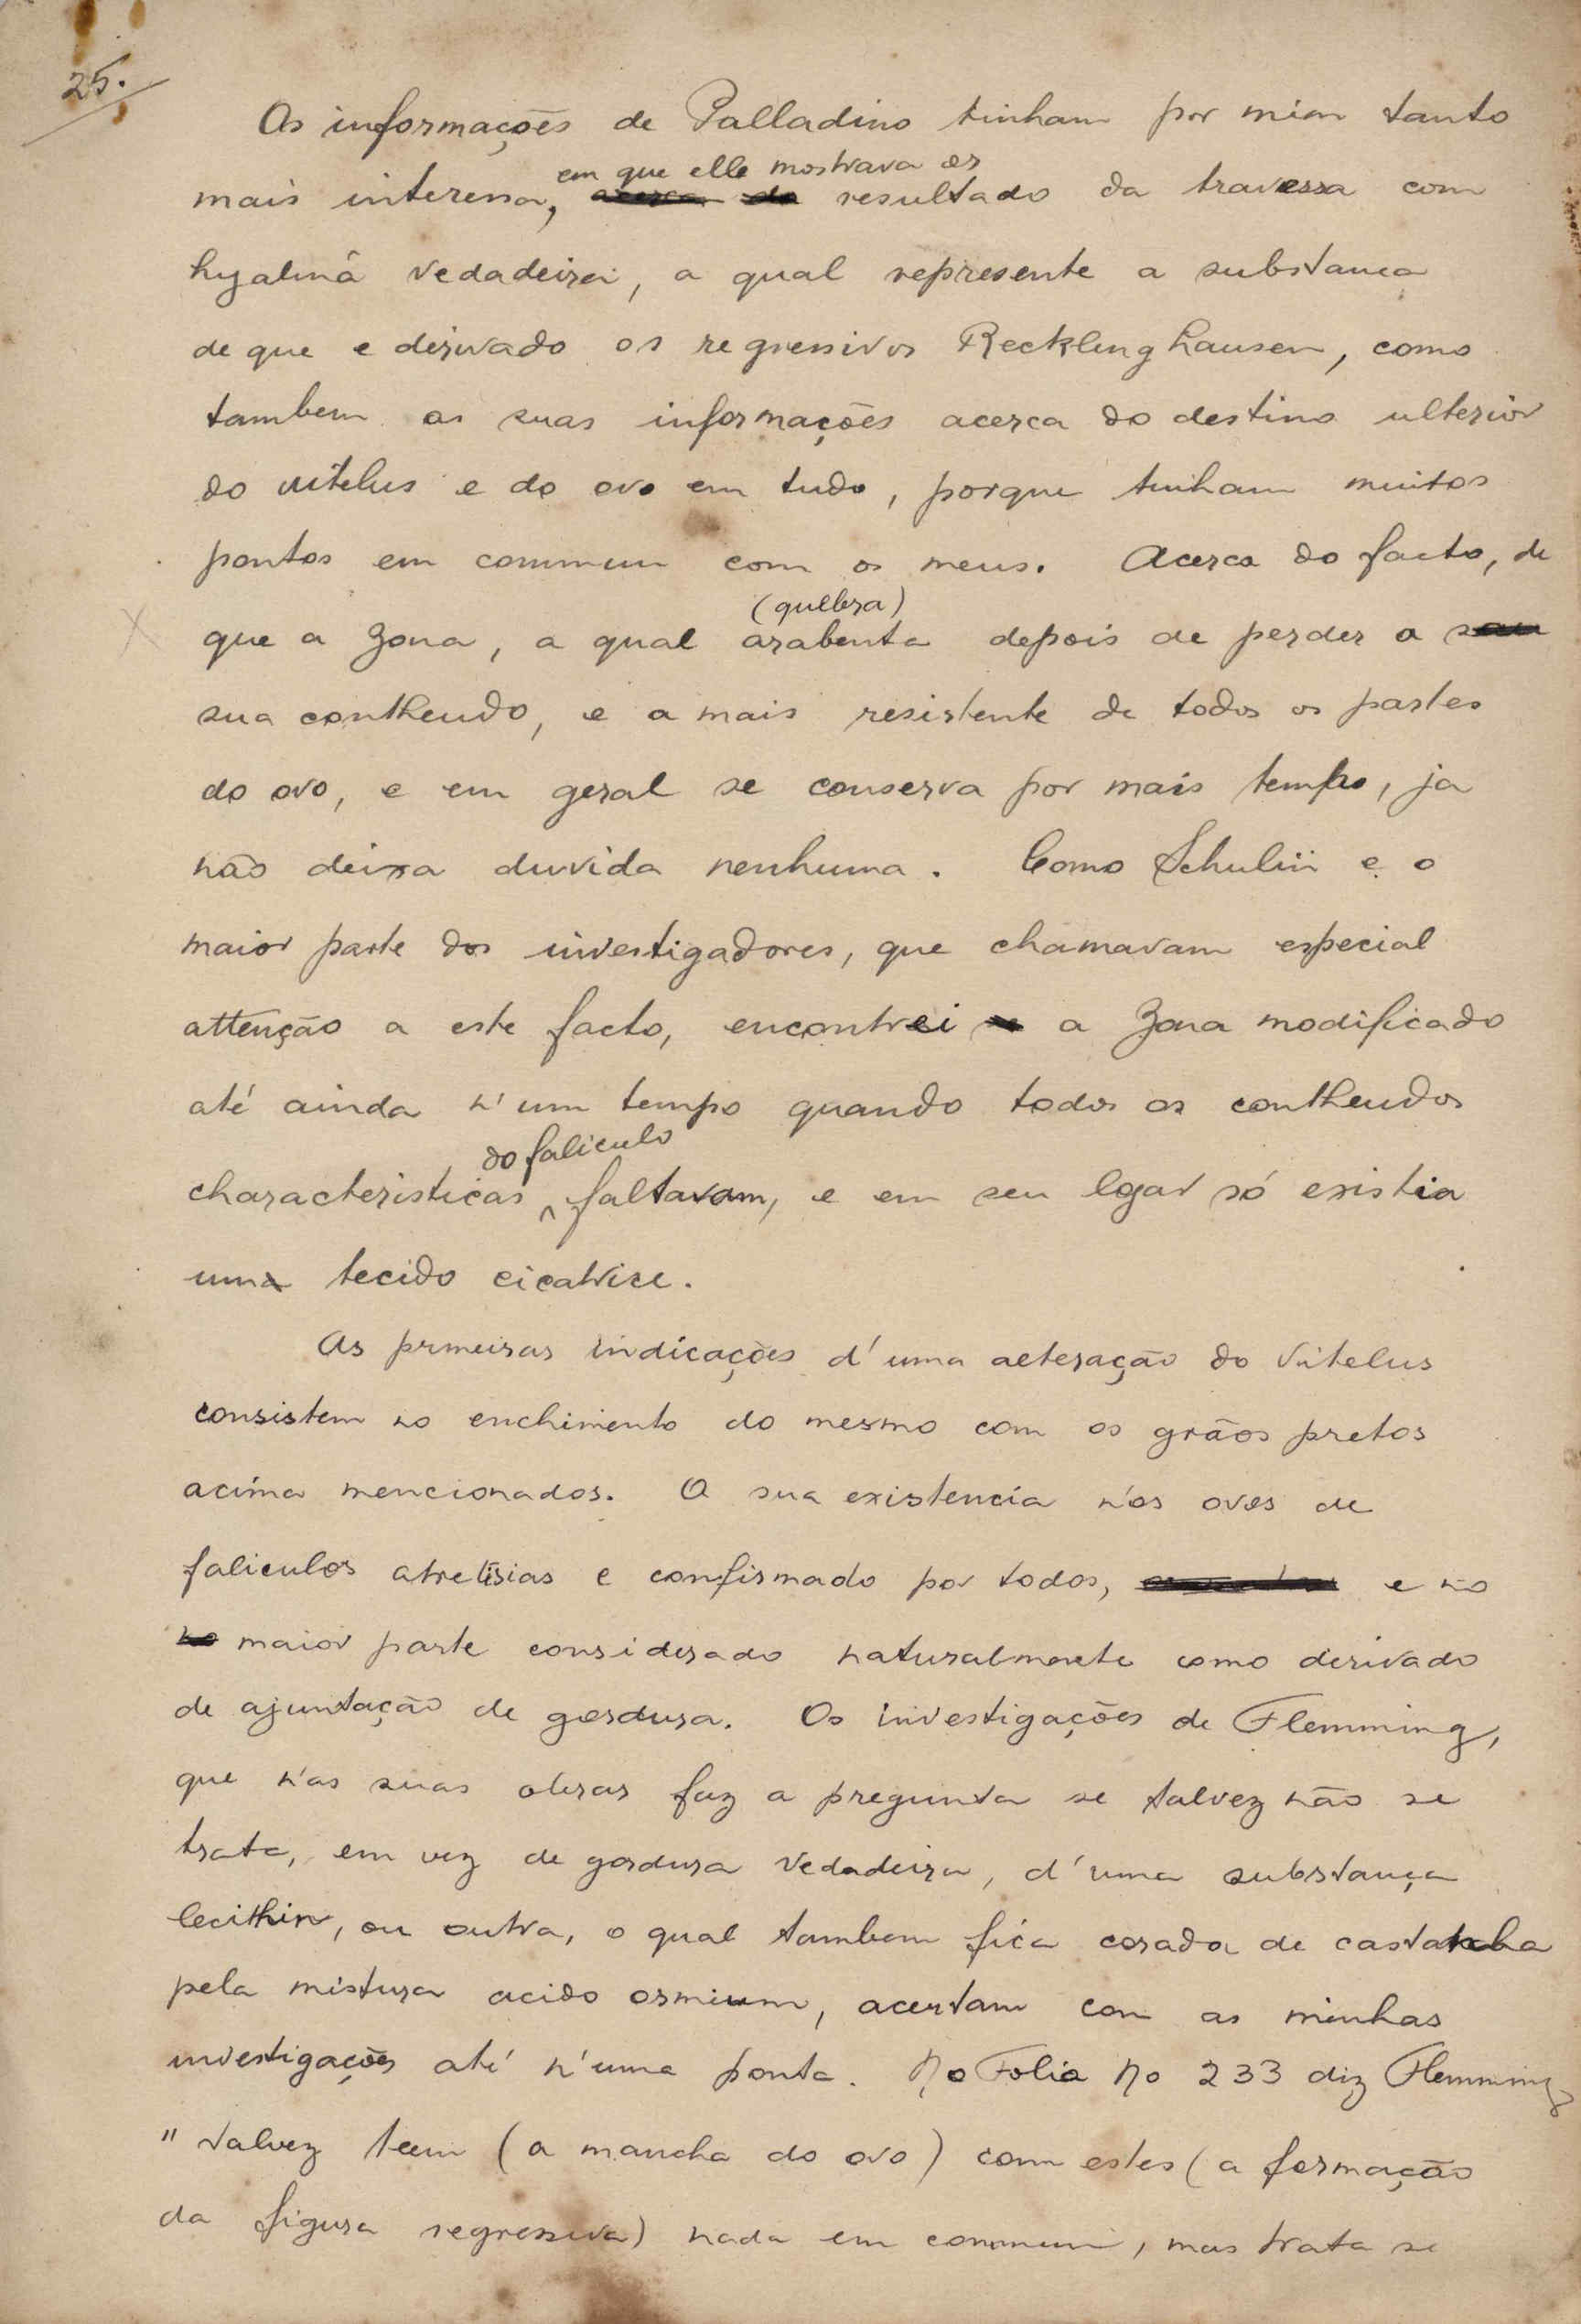 25.
As informações de Palladino tinham por mim tanto
em que elle mostrava os
mais interessa, acerca do resultado da travessa com
hyaliná vedadeira, a qual represente a substanca
de que e derivado os regressivos Recklinghausen, como
tambem as suas informações acerca do destino ulterior
do vitelus e do ovo em tudo, porque tinham muitos
pontos em commun com os meus. Acerca do facto, de
(quebra)
que a Zona, a qual arabenta depois de perder a
sua contheudo, e a mais resistente de todos os partes
do ovo, e em geral se conserva por mais tempo, ja
não deixa duvida nenhuma. Como Schulin e o
maior parte dos investigadores, que chamavam especial
attenção a este facto, encontrei a Zona modificado
até ainda n'um tempo quando todos os contheudos
do faliculo
characteristicas faltavam, e em seu lgar só existia
uma tecido cicatrise.
As prmeiras indicações d'uma aeteração do Vitelus
consistem no enchimento do mesmo com os grãos pretos
acima mencionados. A sua existencia n'os ovos de
faliculos atretisias e confirmado por todos, e no
no maior parte considerado naturalmente como derivado
de ajuntação de gordura. Os investigações de Flemming,
que n'as suas obras faz a pregunta se talvez não se
trata, em vez de gordura vedadeira, d'uma substança
lecithin, ou outra, o qual tambem fica corada de castanha
pela mistura acido osmium, acertam com as minhas
investigações até n'uma ponta. No Folia No 233 diz Flemming
" Talvez teem (a mancha do ovo) com estes (a formação
da figura regressiva) nada em commun, mas trata se